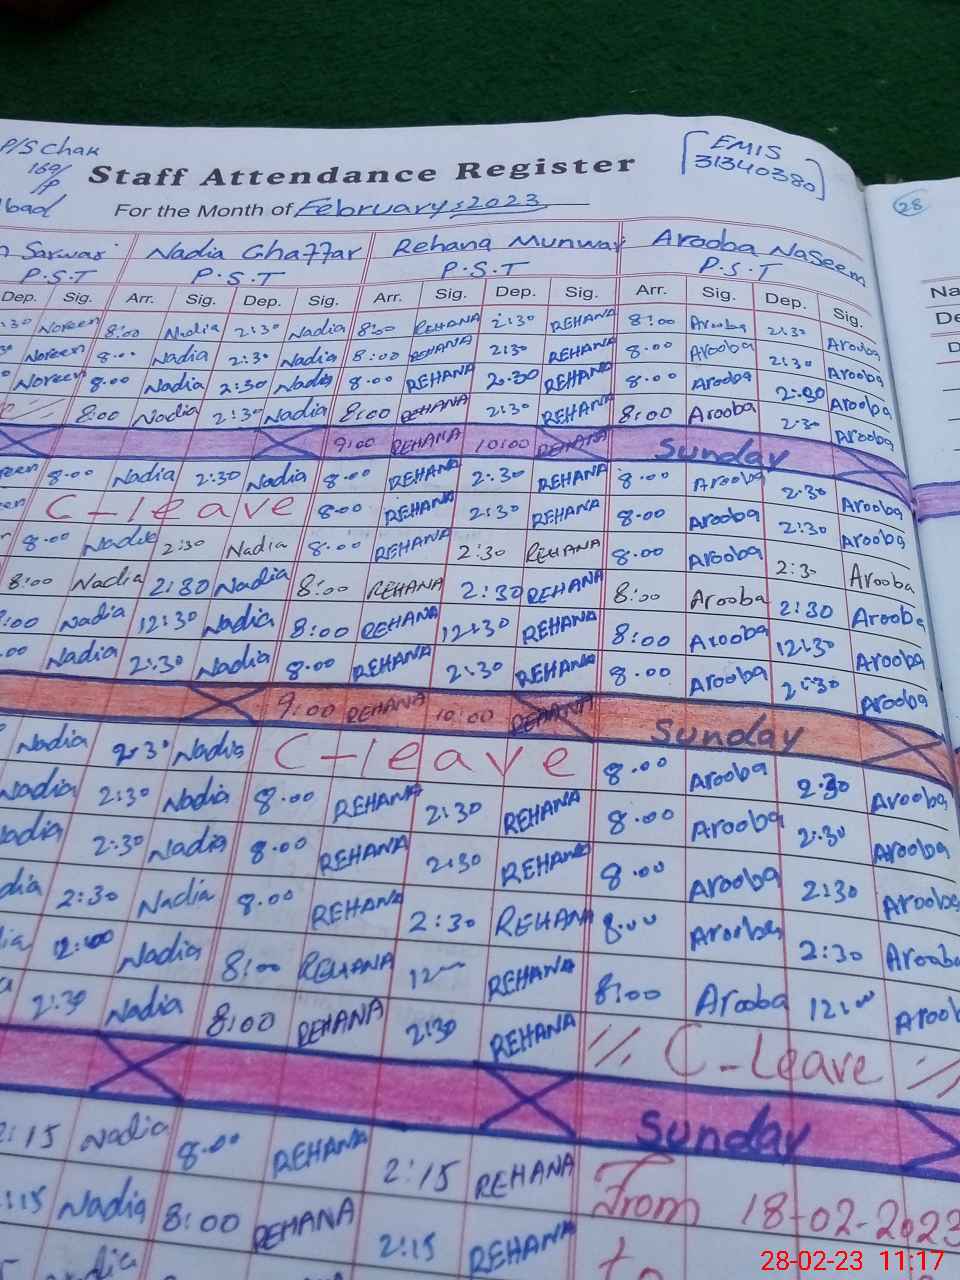 P/S Chak
169/
/P
Staff Attendance Register
EMIS
31340380
bad
For the Month of February, 2023
28
Sarwar Nadia Ghaffar Rehana Munwar Arooba NaSeem
P.S.T P.S.T P.S.T P.S.T
Na
De
Dep. Sig. Arr. Sig. Dep. Sig. Arr. Sig. Dep. Sig. Arr. Sig. Dep. Sig.
:30 Noreen 8:00 Nadia 2:30 Nadia 8:00 REHANA 2:30 REHANA 8:00 Arooba 2:30 Arooba
Noreen 8.00 Nadia 2:30 Nadia 8:00 REHANA 2:30 REHANA 8.00 Arooba 2:30 Arooba
Noreen 8.00 Nadia 2:30 Nadia 8.00 REHANA 2.30 REHANA 8.00 Arooba Arooba
8:00 Nadia 2:30 Nadia 8:00 REHANA 2:30 REHANA 8:00 Arooba 2:30 Arooba
9:00 REHANA 10:00 REHANA Sunday
reen 8.00 Nadia 2:30 Nadia 8.00 REHANA 2.30 REHANA 8.00 Arooba 2.30 Arooba
een C-leave 8.00 REHANA 2:30 REHANA 8.00 Arooba 2:30 Arooba
8.00 Nadia 2:30 Nadia 8.00 REHANA 2:30 REHANA 8.00 Arooba 2:3 Arooba
8:00 Nadia 2:30 Nadia 8:00 REHANA 2:30 REHANA 8:00 Arooba 2:30 Arooba
:00 Nadia 12:30 Nadia 8:00 REHANA 12:30 REHANA 8:00 Arooba 12:30 Arooba
.00 Nadia 2:30 Nadia 8.00 REHANA 2:30 REHANA 8.00 Arooba 2:30 Arooba
9:00 REHANA 10:00 REHANA Sunday
Nadia 2:3 Nadia C-leave 8.00 Arooba 2.30 Arooba
Nadia 2:30 Nadia 8.00 REHANA 2:30 REHANA 8.00 Arooba 2:30 Arooba
adia 2:30 Nadia 8.00 REHANA 2:30 REHANA 8.00 Arooba 2:30 Arooba
dia 2:30 Nadia 8.00 REHANA 2:30 REHANA 8.00 Arooba 2:30 Arooba
ia 12:00 Nadia 8:00 REHANA 12 REHANA 8:00 Arooba 12:00 Aroob
a 2:30 Nadia 8:00 REHANA 2:30 REHANA C-Leave
Sunday
2:15 Nadia 8.00 REHANA 2:15 REHANA From 18-02-2023
:15 Nadia 8:00 REHANA 2:15 REHANA to
adia
28-02-23 11:17